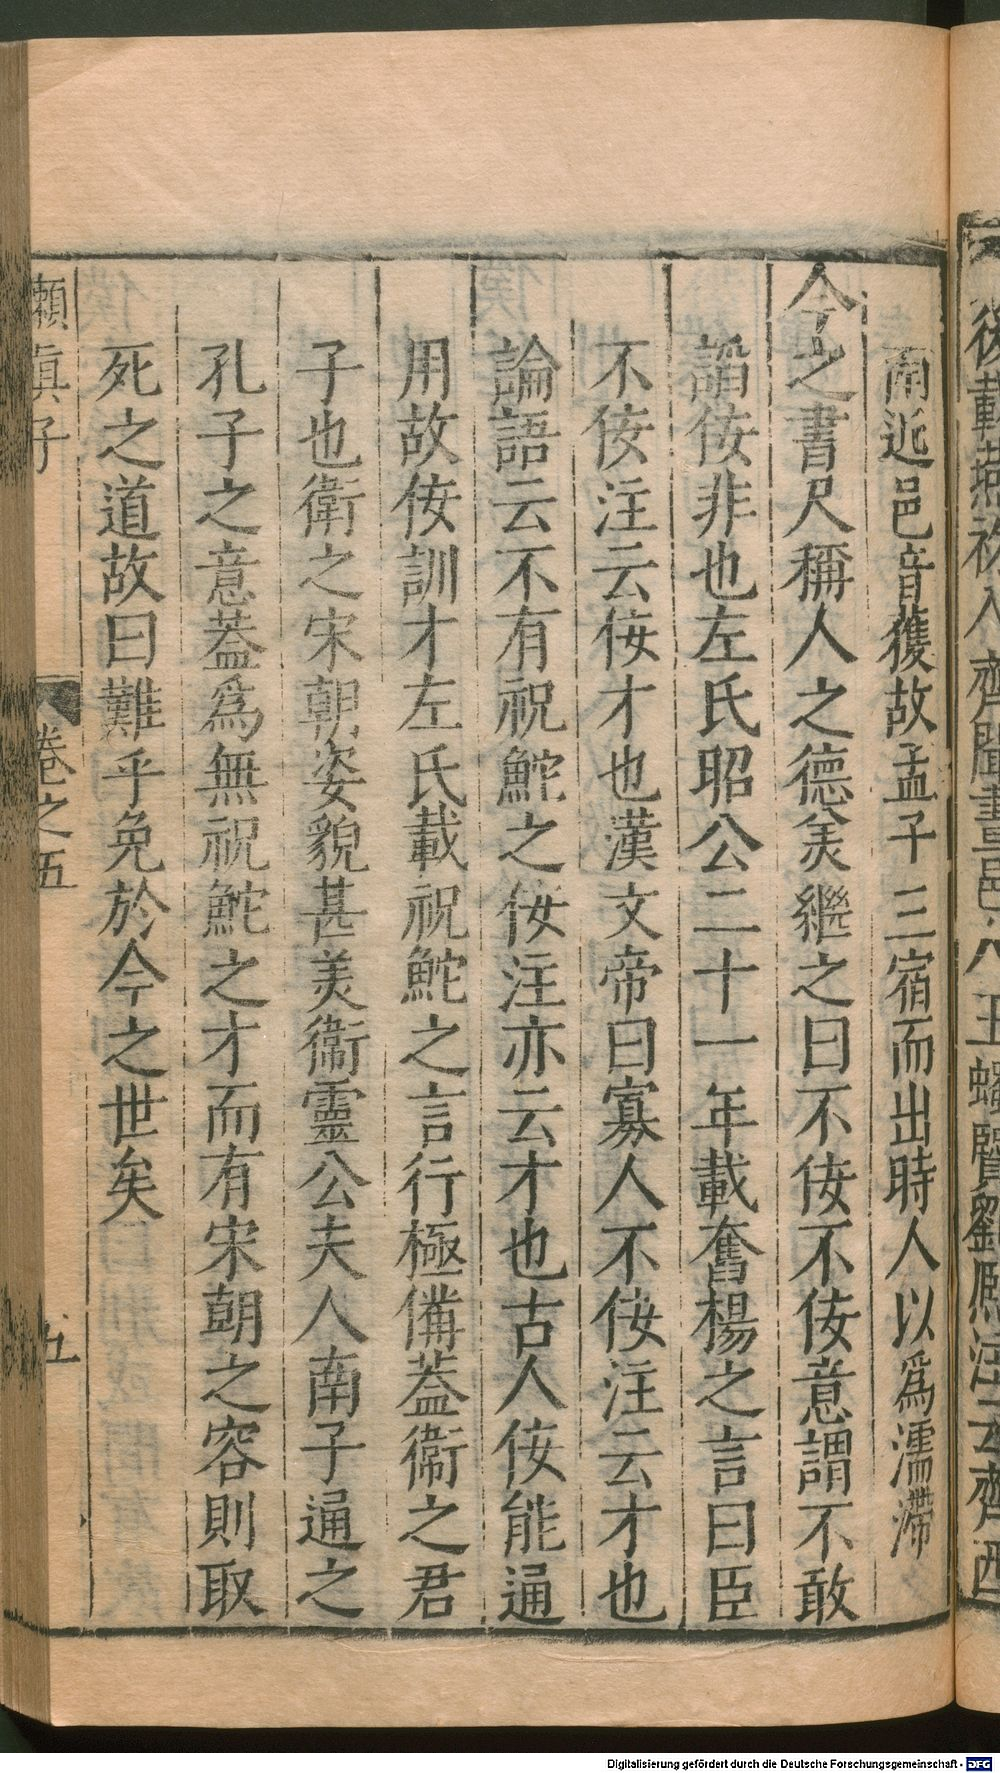 後載燕初入齊聞畫邑人王蠋賢劉熙注云齊西
南近邑音獲故孟子三宿而出時人以爲濡滯
今之書尺稱人之德美繼之曰不佞不佞意謂不敢
諂佞非也左氏昭公二十一年載奮楊之言曰臣
不佞注云佞才也漢文帝曰寡人不佞注云才也
論語云不有祝鮀之佞注亦云才也古人佞能通
用故佞訓才左氏載祝鮀之言行極備蓋衞之君
子也衛之宋朝姿貌甚美衞靈公夫人南子通之
孔子之意蓋爲無祝鮀之才而有宋朝之容則取
死之道故曰難乎免於今之世矣
嬾真子
卷之五
五
Digitalisierung gefördert durch die Deutsche Forschungsgemeinschaft - DFG